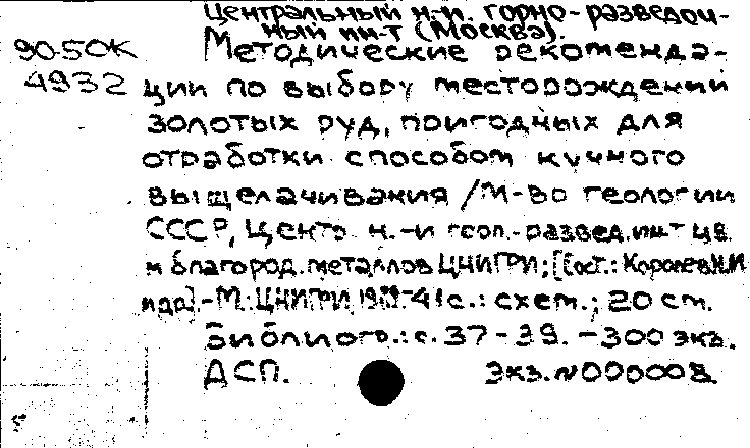 Центральный н.-и. горно-разведоч-
ный ин-т (Москва).
90-50К Методические рекоменда-
4932 ции по выбору месторождений
золотых руд, пригодных для
отработки способом кучного
выщелачивания /М-во геологии
СССР, Центр. н.-и геол.-развед. ин-т цв.
и благород. металлов ЦНИГРИ; [Сост.: Королев Н.И
и др.].-М.: ЦНИГРИ, 41с.: схем.; 20 см.
Библиогр.: с. 37-39. -300 экз.
ДСП. Экз. №000008.